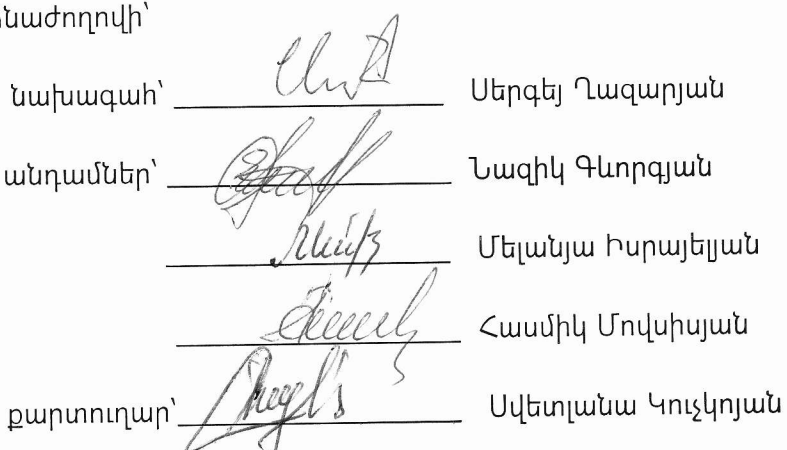 նաժողովի՝
նախագահ՝ Սերգեյ Ղազարյան
անդամներ՝ Նազիկ Գևորգյան
Մելանյա Իսրայելյան
Հասմիկ Մովսիսյան
քարտուղար՝ Սվետլանա Կուչկոյան